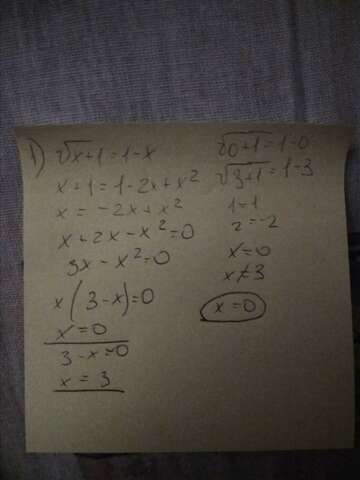 1) √x+1 = 1-x
x+1 = 1-2x+x²
x = -2x+x²
x+2x-x²=0
3x-x²=0
x(3-x)=0
x=0
3-x=0
x = 3
√0+1 = 1-0
√3+1 = 1-3
1=1
2=-2
x=0
x≠3
x=0